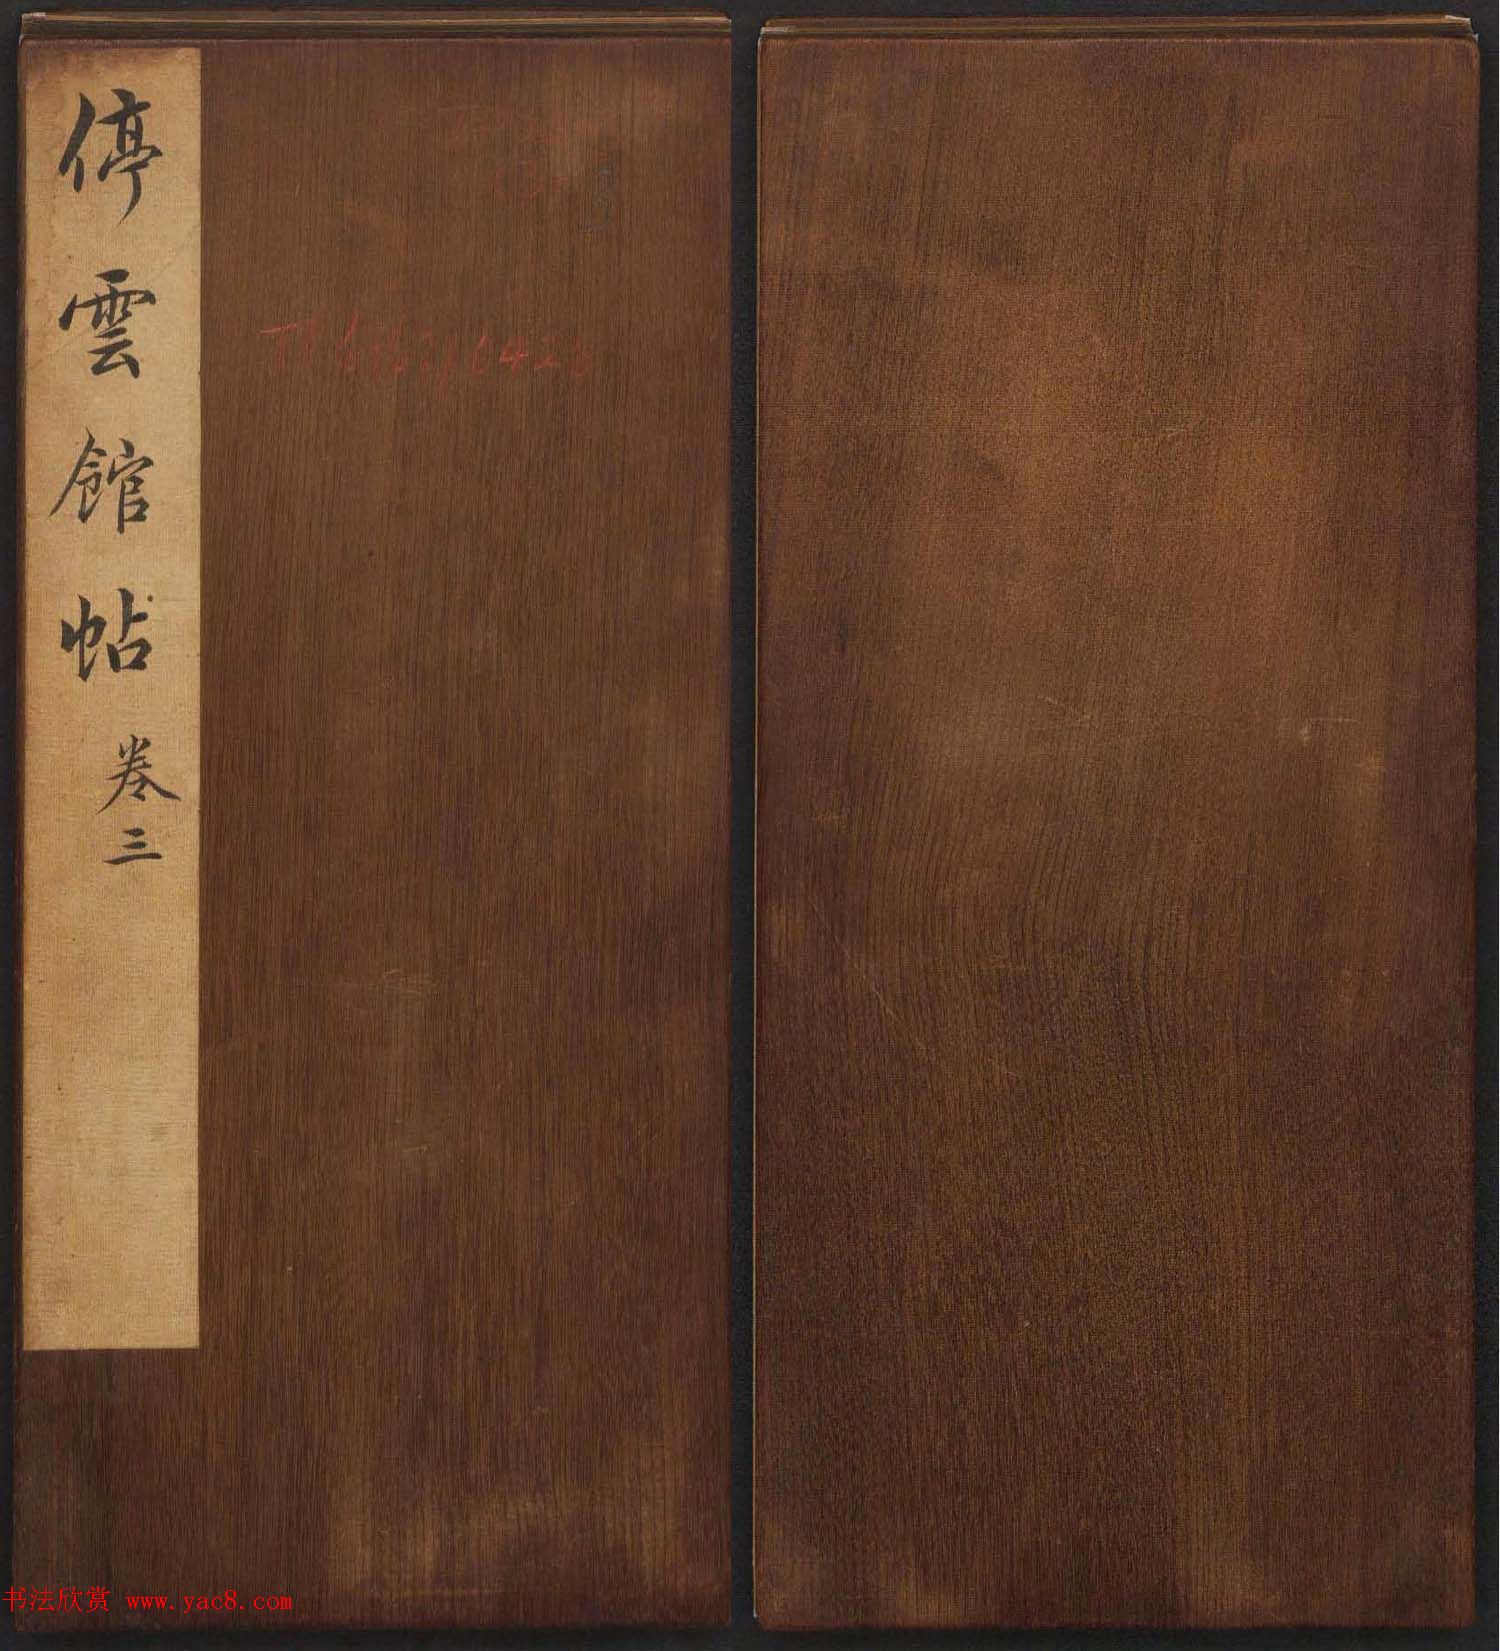 停雲館帖
卷三
书法欣赏 www.yac8.com